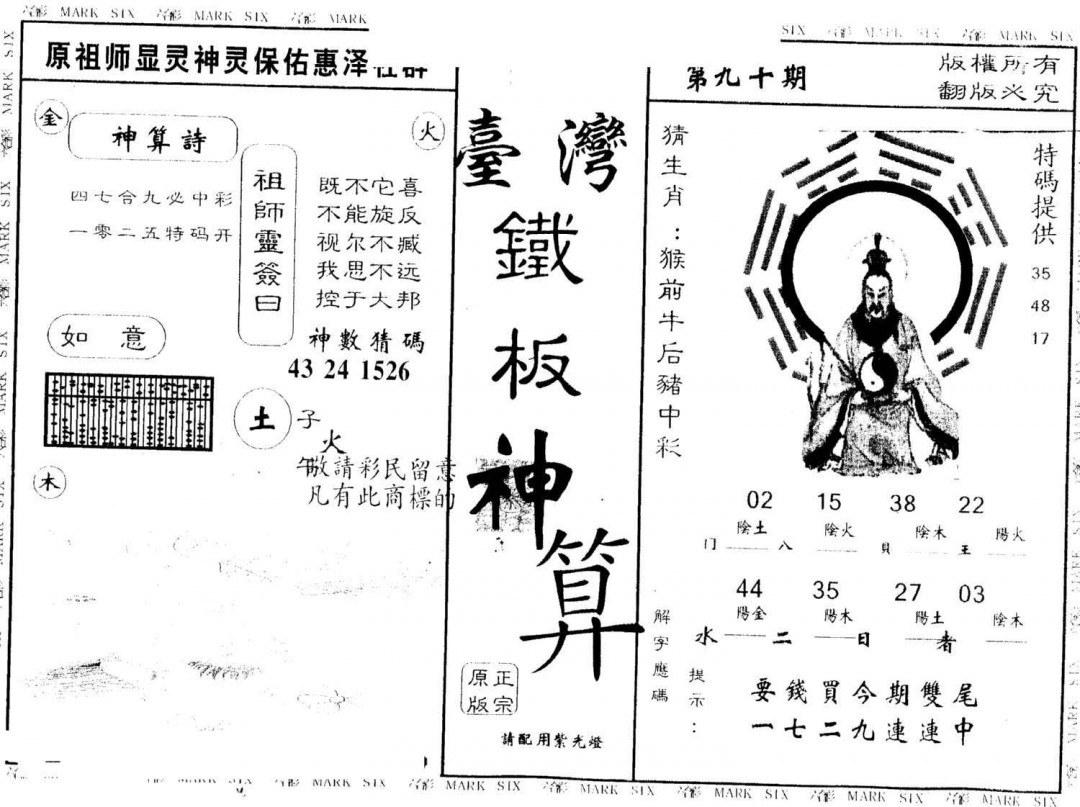 MARK SIX MARK SIX MARK
原祖师显灵神灵保佑惠泽社群
金
神算詩
火
四七合九必中彩
一零二五特码开
祖師靈簽曰
既不它喜
不能旋反
视尔不臧
我思不远
控于大邦
神數猜碼
43 24 1526
如意
土
子
火
午
敬請彩民留意
凡有此商標的
木
臺灣
鐵
板
神
算
正宗
原版
請配用紫光燈
SIX MARK SIX MARK SIX
第九十期
版權所有
翻版必究
猜生肖：猴前牛后豬中彩
特碼提供
35
48
17
02 15 38 22
陰土 陰火 陰木 陽火
门 八 貝 王
44 35 27 03
陽金 陽木 陽土 陰木
水 二 日 者
解字應碼
提示：
要錢買今期雙尾
一七二九連連中
MARK SIX MARK SIX MARK SIX MARK SIX MARK SIX MARK SIX